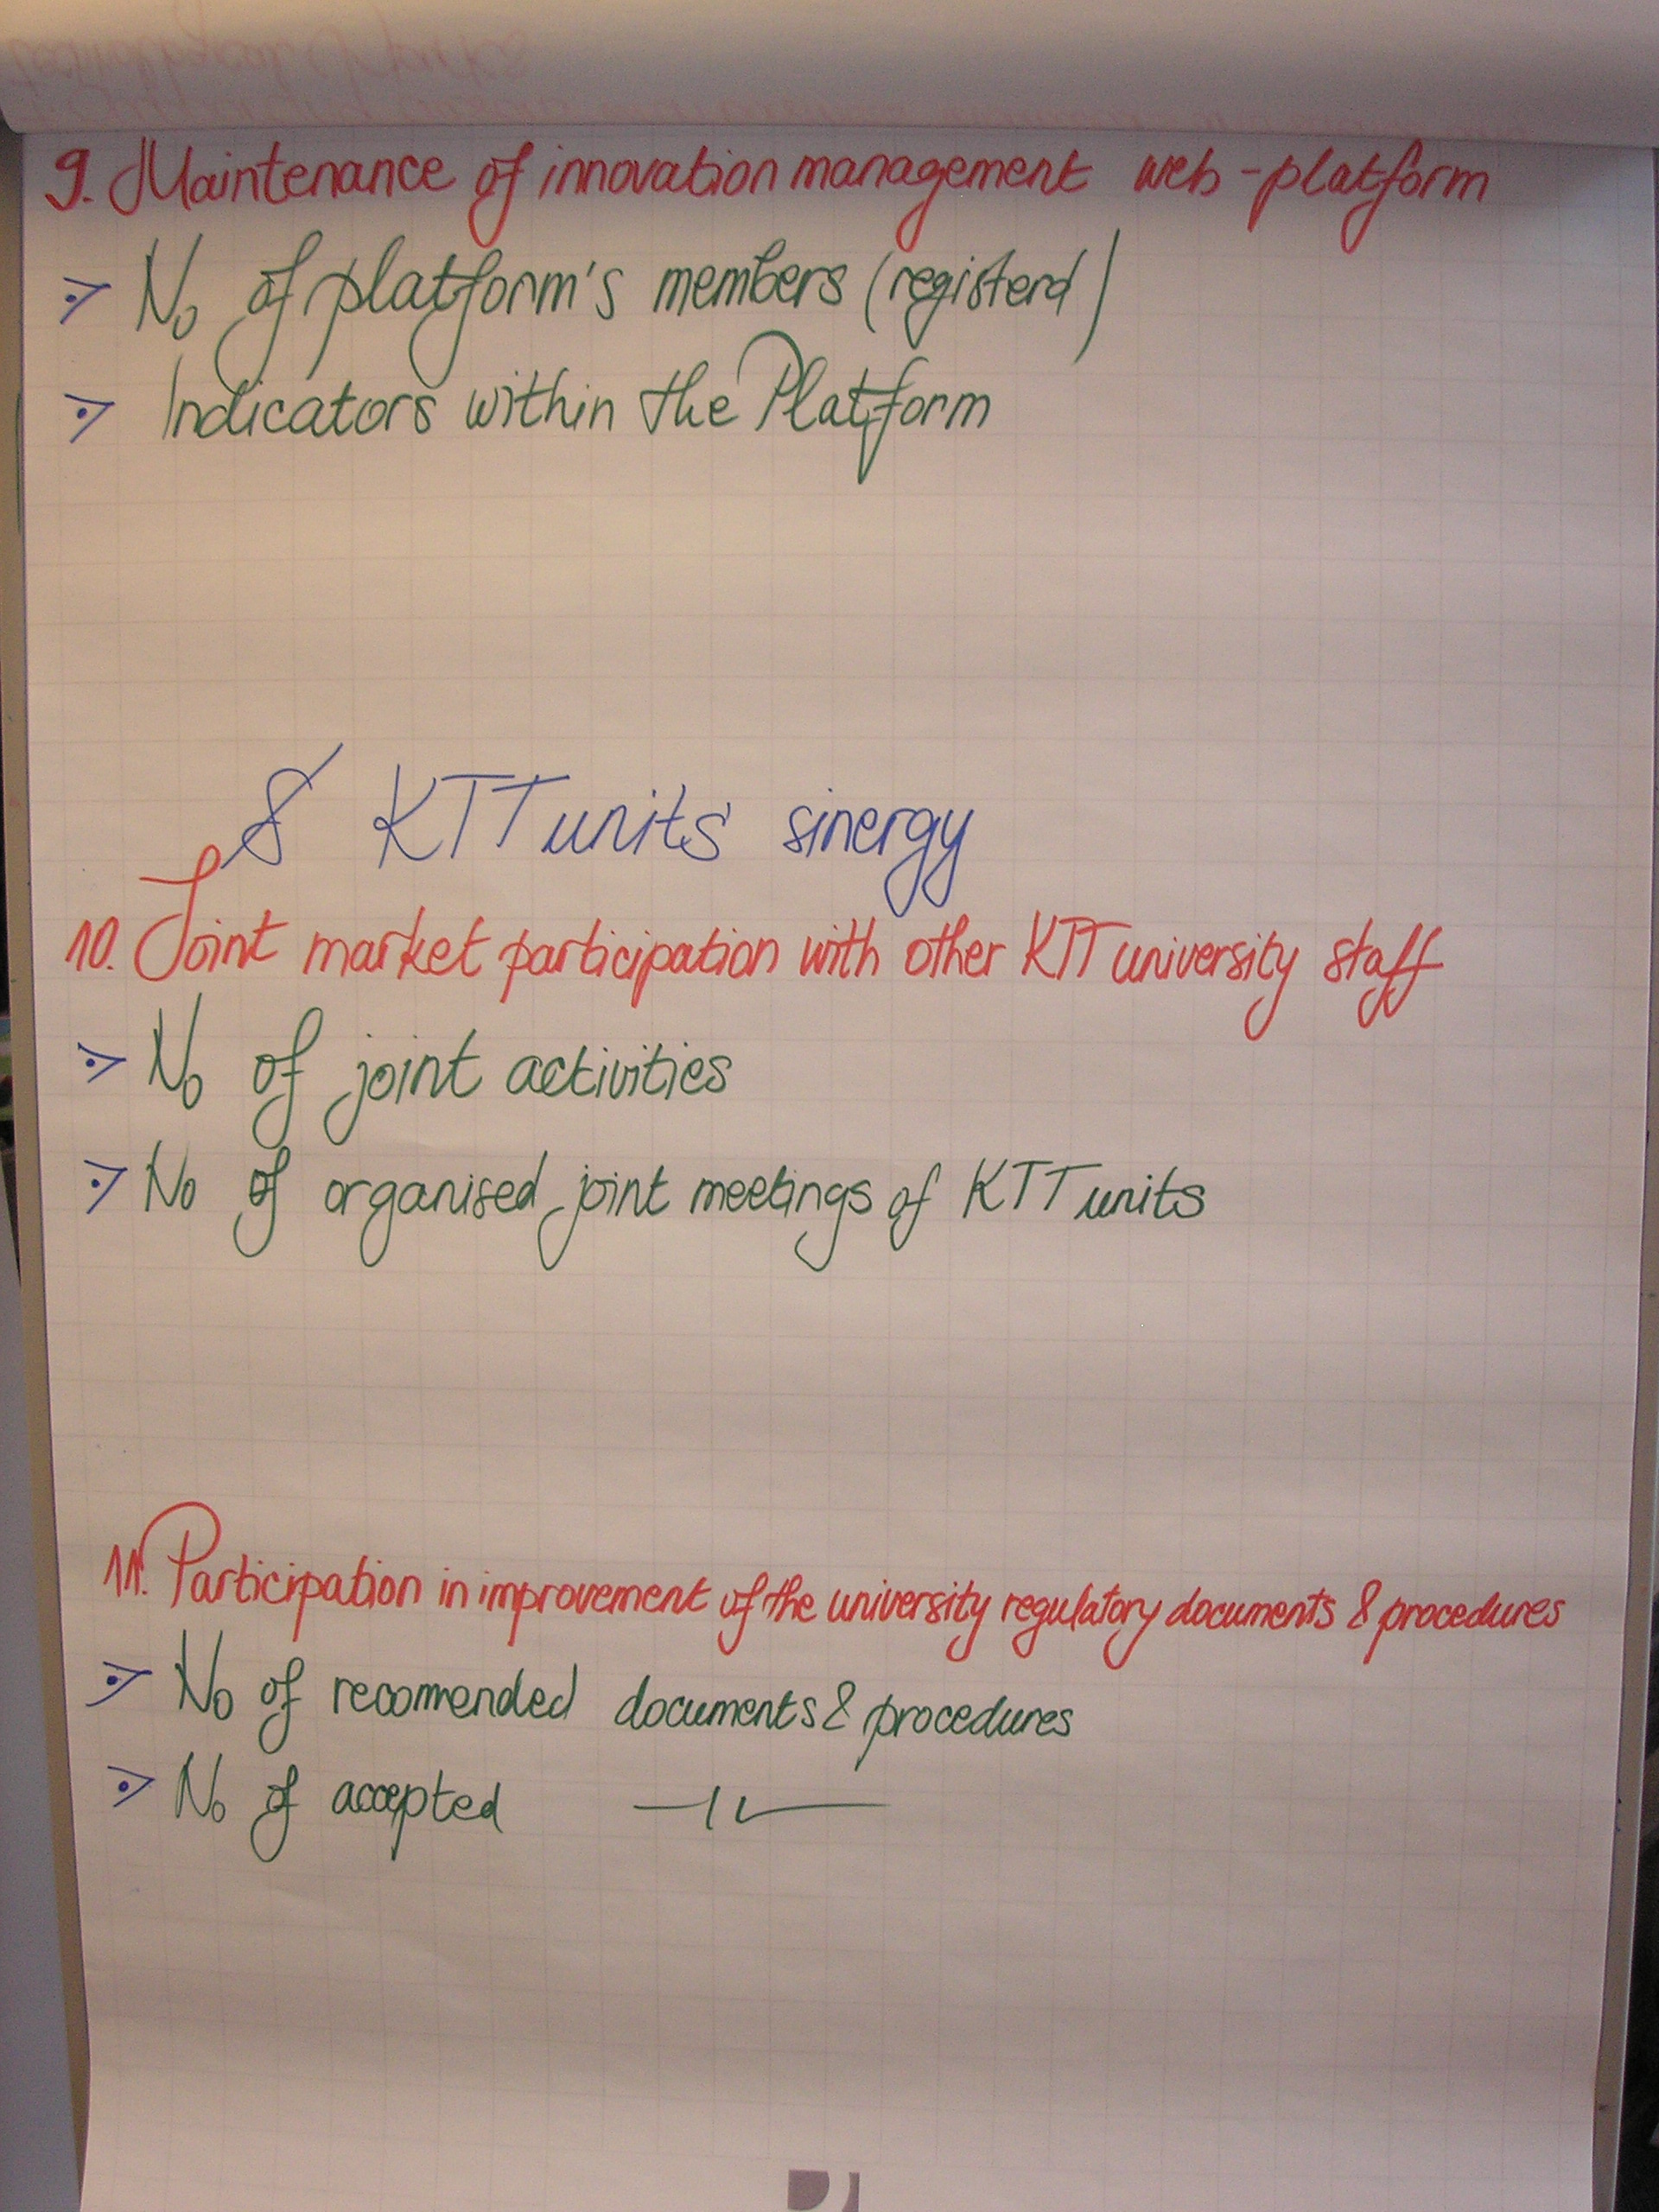 9. Maintenance of innovation management web-platform
No of platform's members (registerd)
Indicators within the Platform
8 KTT units' sinergy
10. Joint market participation with other KTT university staff
No of joint activities
No of organised joint meetings of KTT units
11. Participation in improvement of the university regulatory documents & procedures
No of recomended documents & procedures
No of accepted —11—